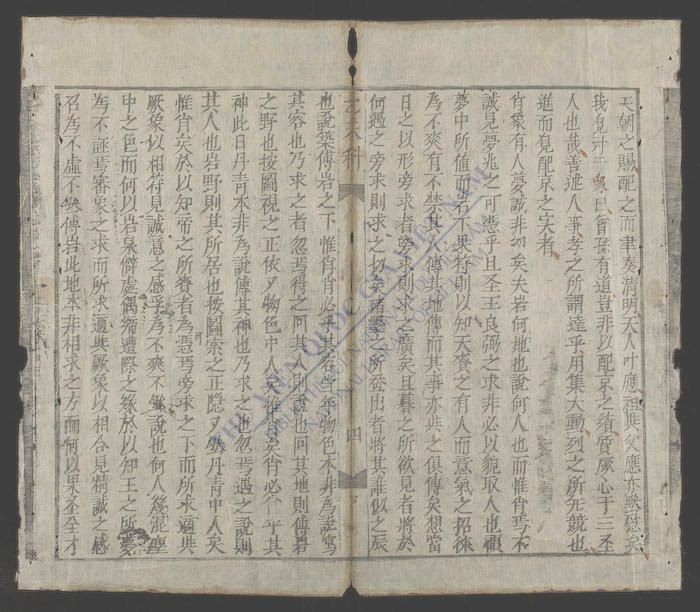 天朝之賜配之而聿奏清明天人叶應祖與父應亦慰矣
我覓于二象曰曾孫有道豈非以配京之績質厥心于三圣
人也哉善述人事孝之所謂達乎用集大勳烈之所先競也
進而覓配京之实者
肖象有人夢誠非幻矣夫岩何地也說何人也而惟肖焉不
誠見夢兆之可憑乎且圣王良弼之求非必以貌取人也顧
夢中所值見者不果符則以知天賚之有人而意氣之招徠
為不爽有不禁其人傳其地傳而其事亦與之俱傳矣想當
日之以形旁求者旁求則求之廣矣且暮之所欲見者將於
何遇之旁求則求之切矣楮墨之所登出者將其誰似之辰
文六科
四
也說築傅岩之下惟肖肖必乎其岩当年物色本非為說寫
其容也乃求之者忽焉得之何其人則說也何其地則傅岩
之野也按圖視之正依乂物色中人矣惟肖矣肖必乎其
神此日丹青本非為說傳其神也乃求之也忽焉遇之說則
其人也岩野則其所居也按圖索之正隱乂丹青中人矣
惟肖矣於以知帝之所賚者為憑焉旁求之下而所求適與
厥象以相符見誠意之感孚為不爽不然說也何人幾混塵
中之色而何以岩泉僻處偶符遭際之緣於以知王之所夢
為不誣焉審象之求而所求適與厥象以相合見精誠之感
召為不虛不然傅岩此地本非相求之方而何以果圣圣才
VIỆN QUỐC GIA VIỆT NAM